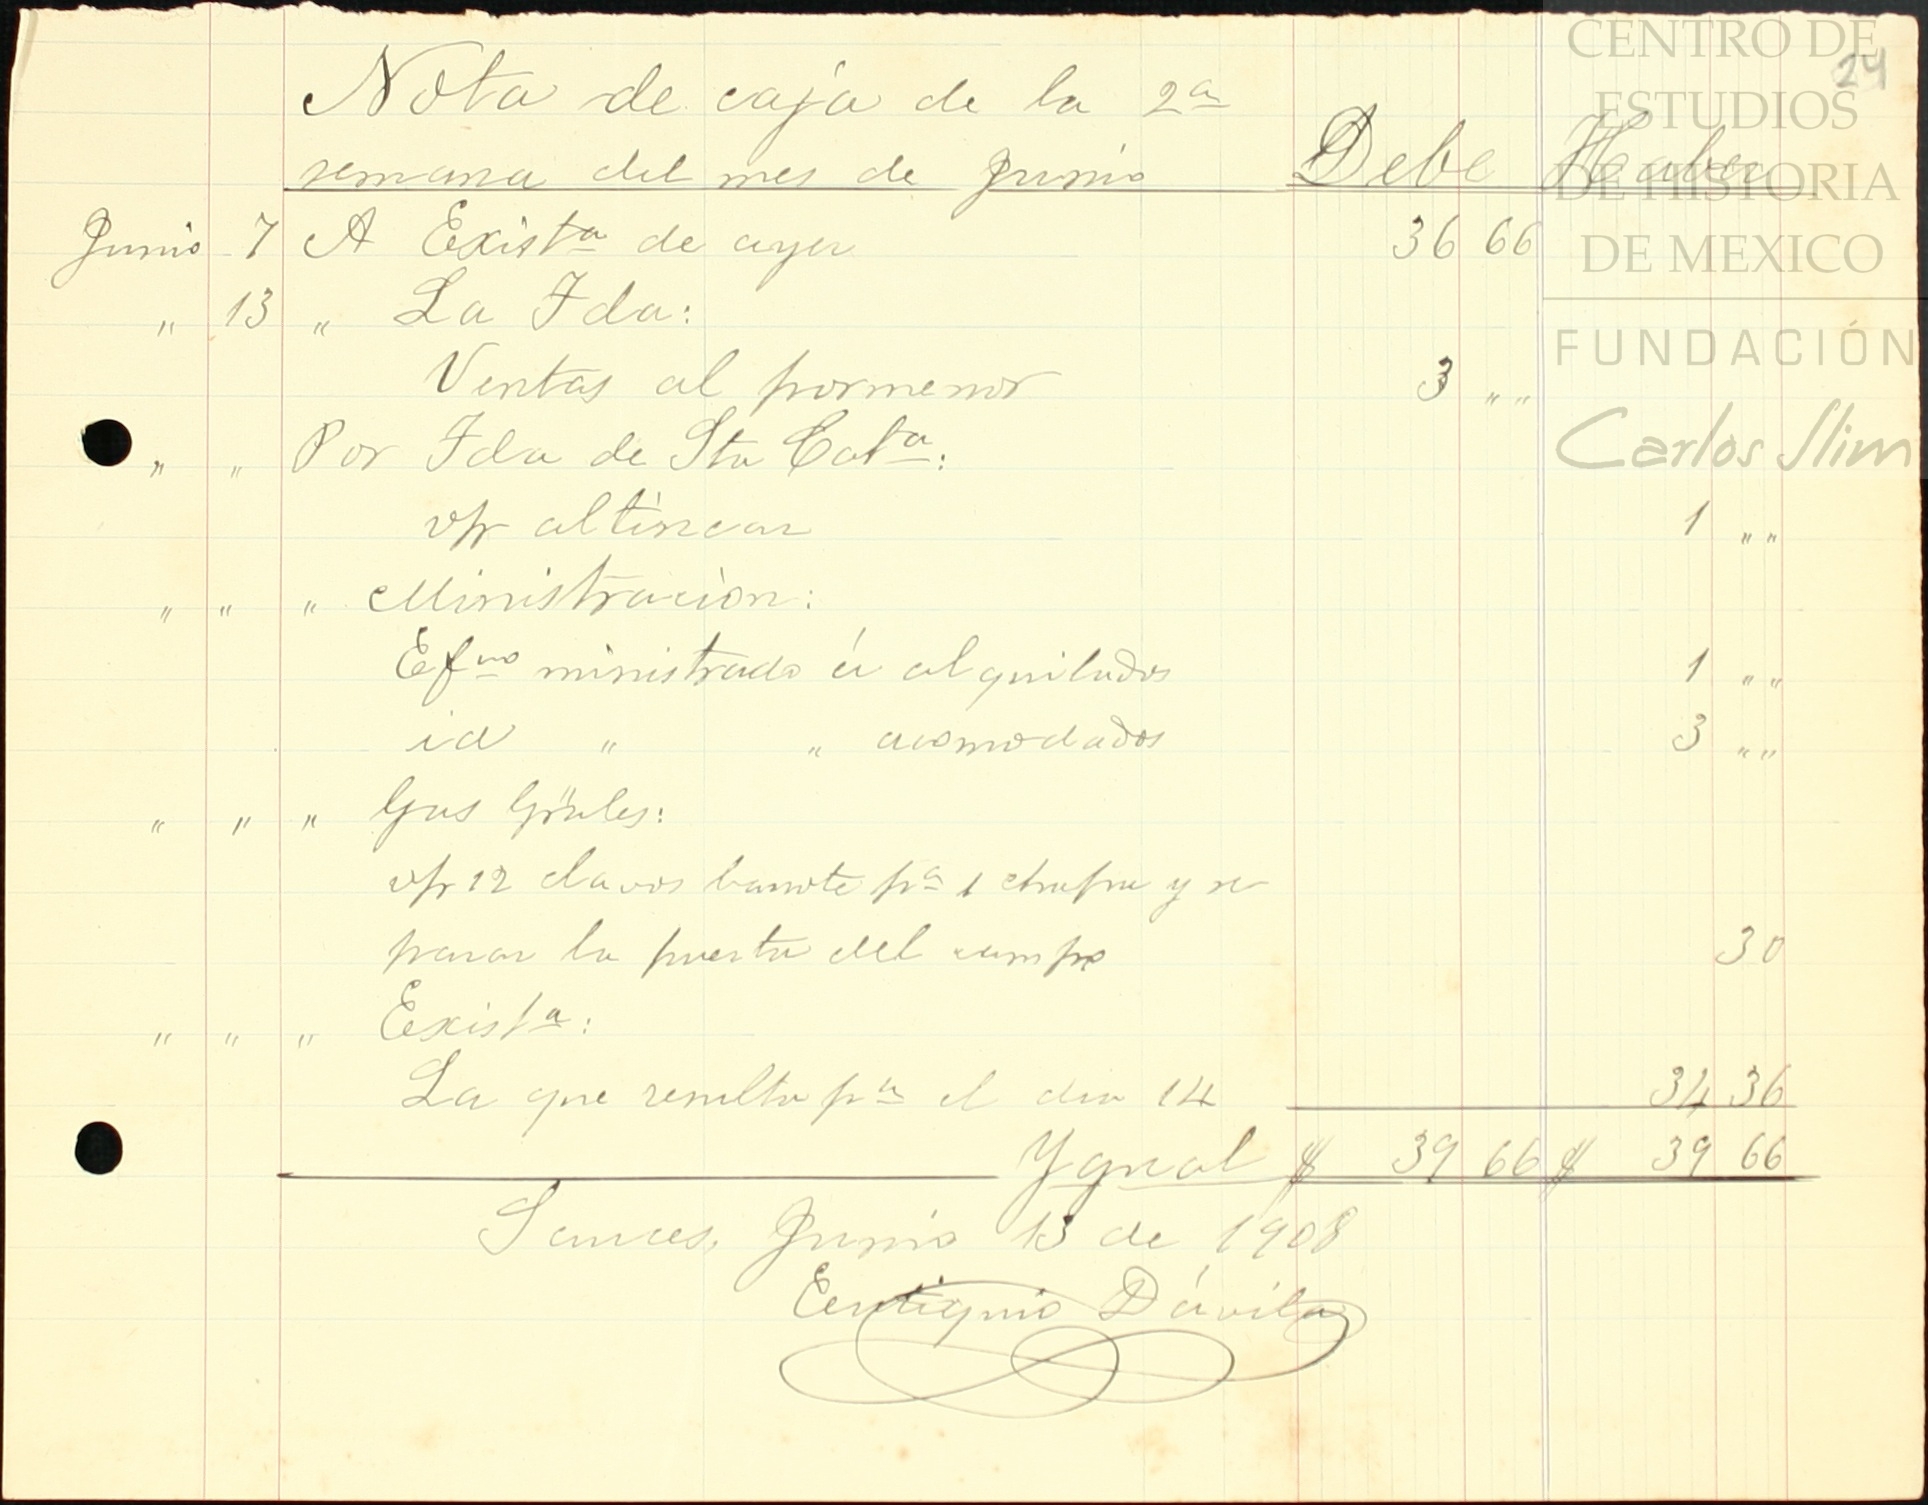 CENTRO DE
ESTUDIOS
DE HISTORIA
DE MEXICO
FUNDACIÓN
Carlos Slim
24
Nota de caja de la 2ª
semana del mes de Junio Debe Haber
Junio 7 A Existª de ayer 36 66
" 13 " La Fda:
Ventas al pormenor 3 " "
" " Por Fda de Sta Catª:
vpr altincar 1 " "
" " " Ministracion:
Efvo ministrado á alquilados 1 " "
id " " acomodados 3 " "
" " " Gas Grales:
vpr 12 clavos barrote pª 1 chapa y re
parar la puerta del campo 30
" " " Existª:
La que resulta pª el dia 14 34 36
Ygual $ 39 66 $ 39 66
Sauces, Junio 13 de 1908
Eutiquio Dávila